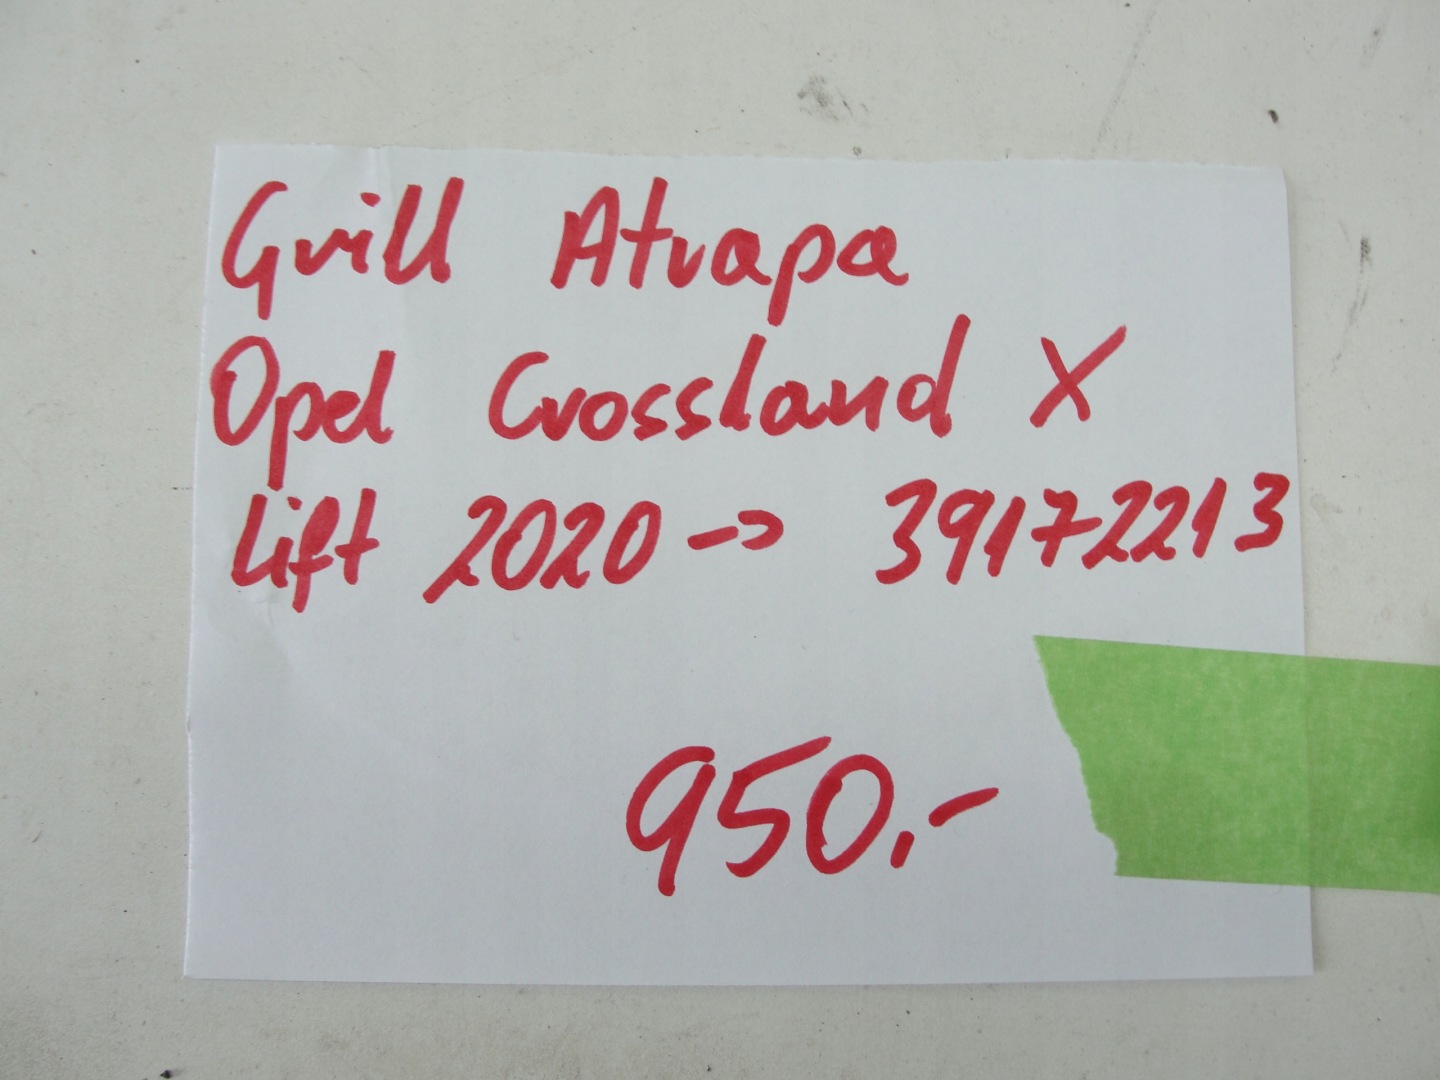 Grill Atrapa
Opel Crossland X
Lift 2020-> 39172213
950.-